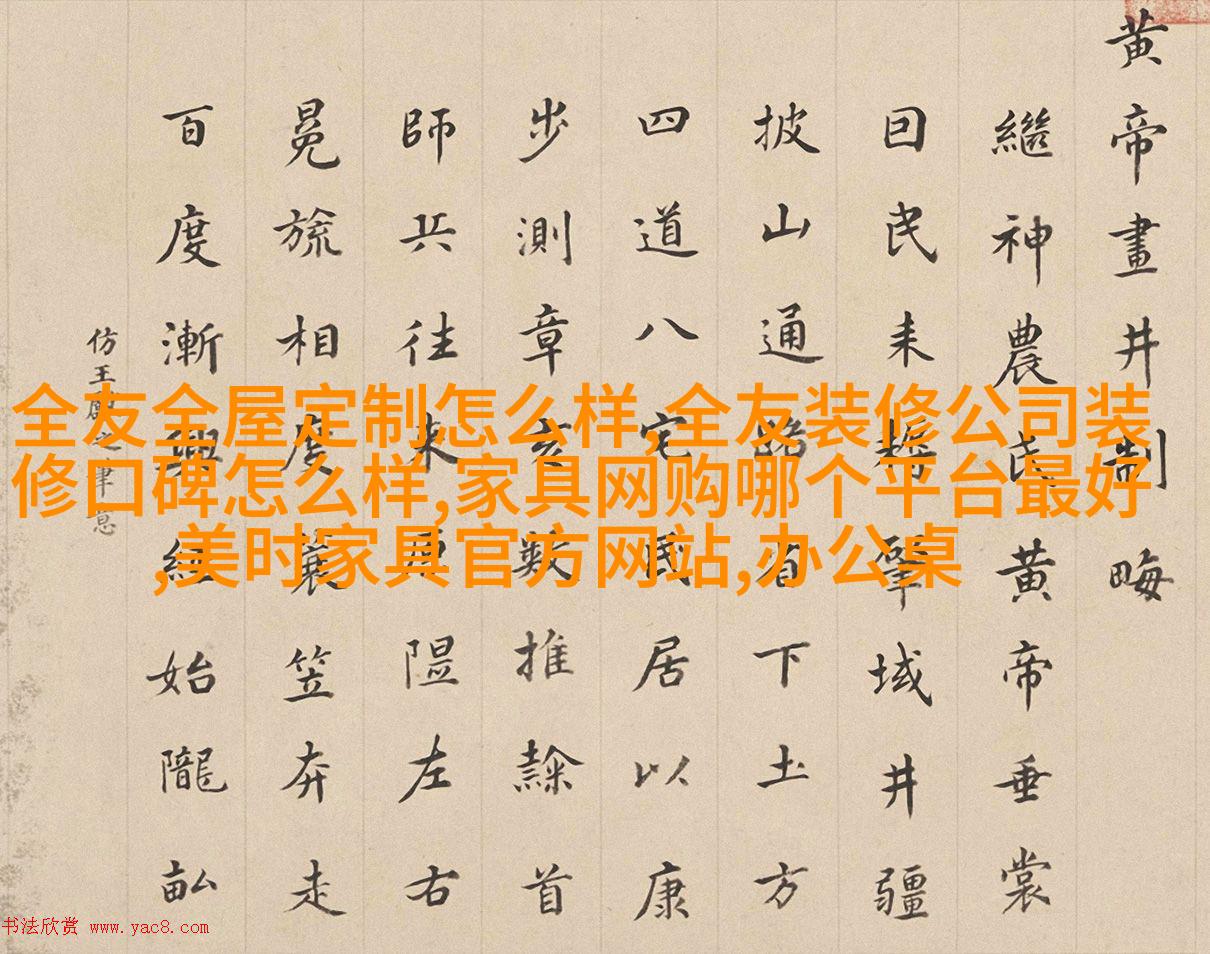 黄帝畫井制畮
繼神農氏黄帝垂裳
囙民耒耨肇域井疆
披山通路省下土方
四道八宅民居以康
步測章亥數推隸首
師兵往来原隰左右
冕旒相度蓑笠奔走
百度漸興經始隴畝
仿王獻之筆意
全友全屋定制怎么样,全友装修公司装
修口碑怎么样,家具网购哪个平台最好
,美时家具官方网站,办公桌
书法欣赏 www.yac8.com